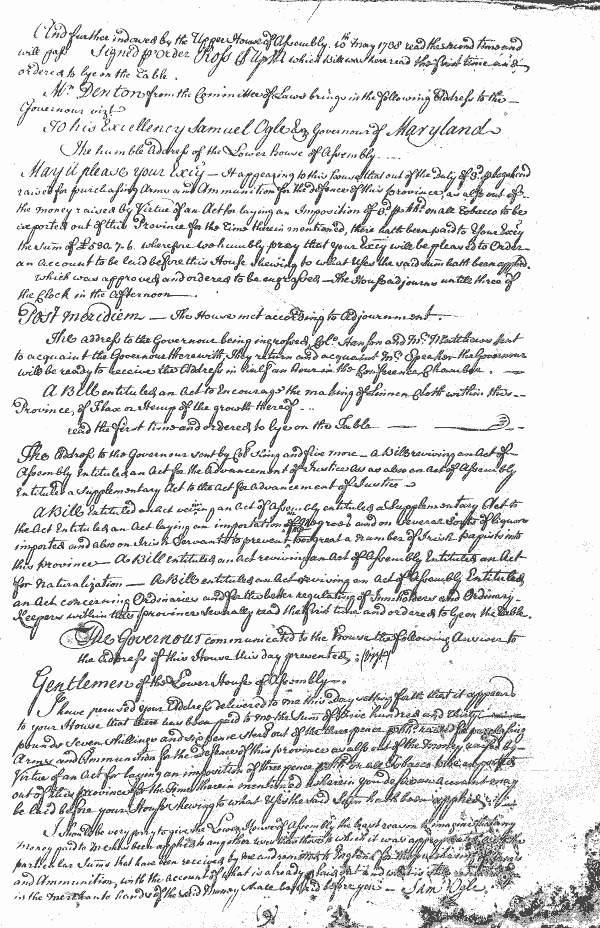 And further indorsed by the Upper House of Assembly. 10th May 1738 read the second time and
will pass Signed p order Ross Cl Up Hs which Bill was here read the first time and
ordered to lye on the Table.
Mr. Denton from the Committee of Laws brings in the following Address to the
Governour vizt
To his Excellency Samuel Ogle Esq Governour of Maryland
The humble Address of the Lower house of Assembly.
May it please your Excŷ It appearing to this house that out of the duty of 3d p hogshead
raised for purchasing Arms and Ammunition for the defence of this Province, as also out of
the money raised by Virtue of an Act for laying an Imposition of 3d p hhd on all Tobacco to be
exported out of this Province for the time therein mentioned, there hath been paid to Your Excŷ
the Sum of £530.7.6. wherefore we humbly pray that your Excŷ will be pleased to Order
an Account to be laid before this House shewing to what Uses the said sum hath been applied.
which was approved and ordered to be engrossed - The House adjourns until three of
the Clock in the Afternoon
Post Meridiem - The House met according to Adjournment.
The address to the Governour being ingrossed, Col. Hanson and Mr. Matthews sent
to acquaint the Governour therewith, They return and acquaint Mr. Speaker the Governour
will be ready to receive the Address in half an hour in the Conference Chamber.
A Bill entituled an Act to Encourage the making of Linnen Cloth within this
Province, of Flax or Hemp of the growth thereof
read the first time and ordered to lye on the Table
The Address to the Governour sent by Col. King and five more - A Bill reviving an Act of
Assembly Entituled an Act for the advancement of Justice As as also an Act of Assembly
Entituled a Supplementary Act to the Act for Advancement of Justice
A Bill Entituled an act reviving an Act of Assembly entituled a Supplementary Act to
the Act Entituled an Act laying an importation of Negroes and on several Sorts of liquors
imported and also on Irish Servants to prevent too great a number of Irish Papists into
this province - A Bill entituled an Act reviving an Act of Assembly Entituled an Act
for Naturalization - A Bill entituled an Act reviving an Act of Assembly Entituled
an Act concerning Ordinaries and for the better regulating of Innholders and Ordinary
Keepers within this province Severally read the first time and ordered to lye on the Table.
The Governour communicated to the House the following Answer to
the Address of this House this day presented, (vizt)
Gentlemen of the Lower House of Assembly.
I have perused your Address delivered to me this Day setting forth that it appears
to your House that there has been paid to me the Sum of Five hundred and thirty
pounds Seven Shillings and six pence Sterl out of the three pence p hhd raised for purchasing
Arms and Ammunition for the defence of this province as also out of the money raised by
Virtue of an Act for laying an imposition of three pence p hhd on all Tobacco to be exported
out of this province for the time therein mentioned wherein you desire an Account may
be laid before your House shewing to what Uses the said Sum hath been applied
I should be very sorry to give the Lower House of Assembly the least reason to imagine that any
money paid to me has been applied to any other uses than those to which it was appropriated and the
particular Sums that have been received by me and remitted to England for the purchasing of Arms
and Ammunition, with the account of what is already laid out and what is still remaining
in the Merchants hands of the said money shall be laid before you - Sam Ogle.